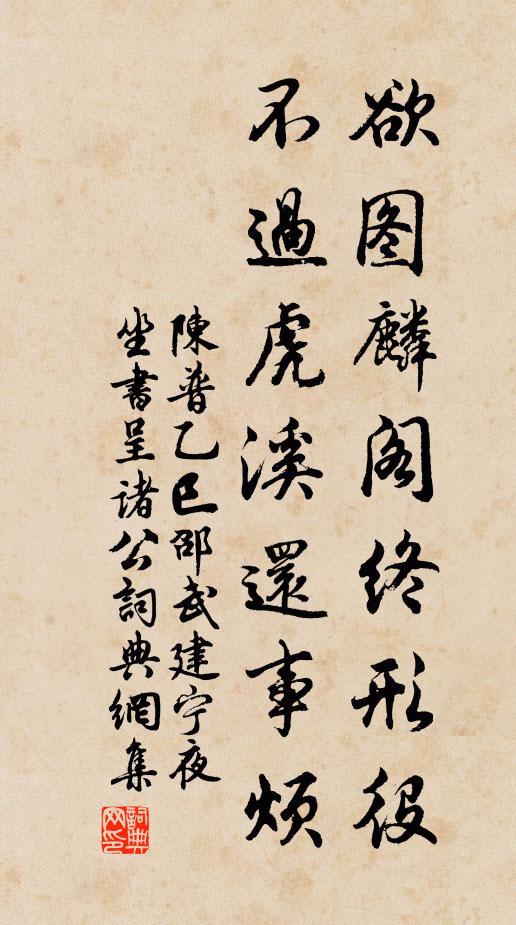 欲图麟阁终形役
不過虎溪還事煩
陳普乙巳邵武建宁夜
坐書呈諸公詞典網集
詞典网印